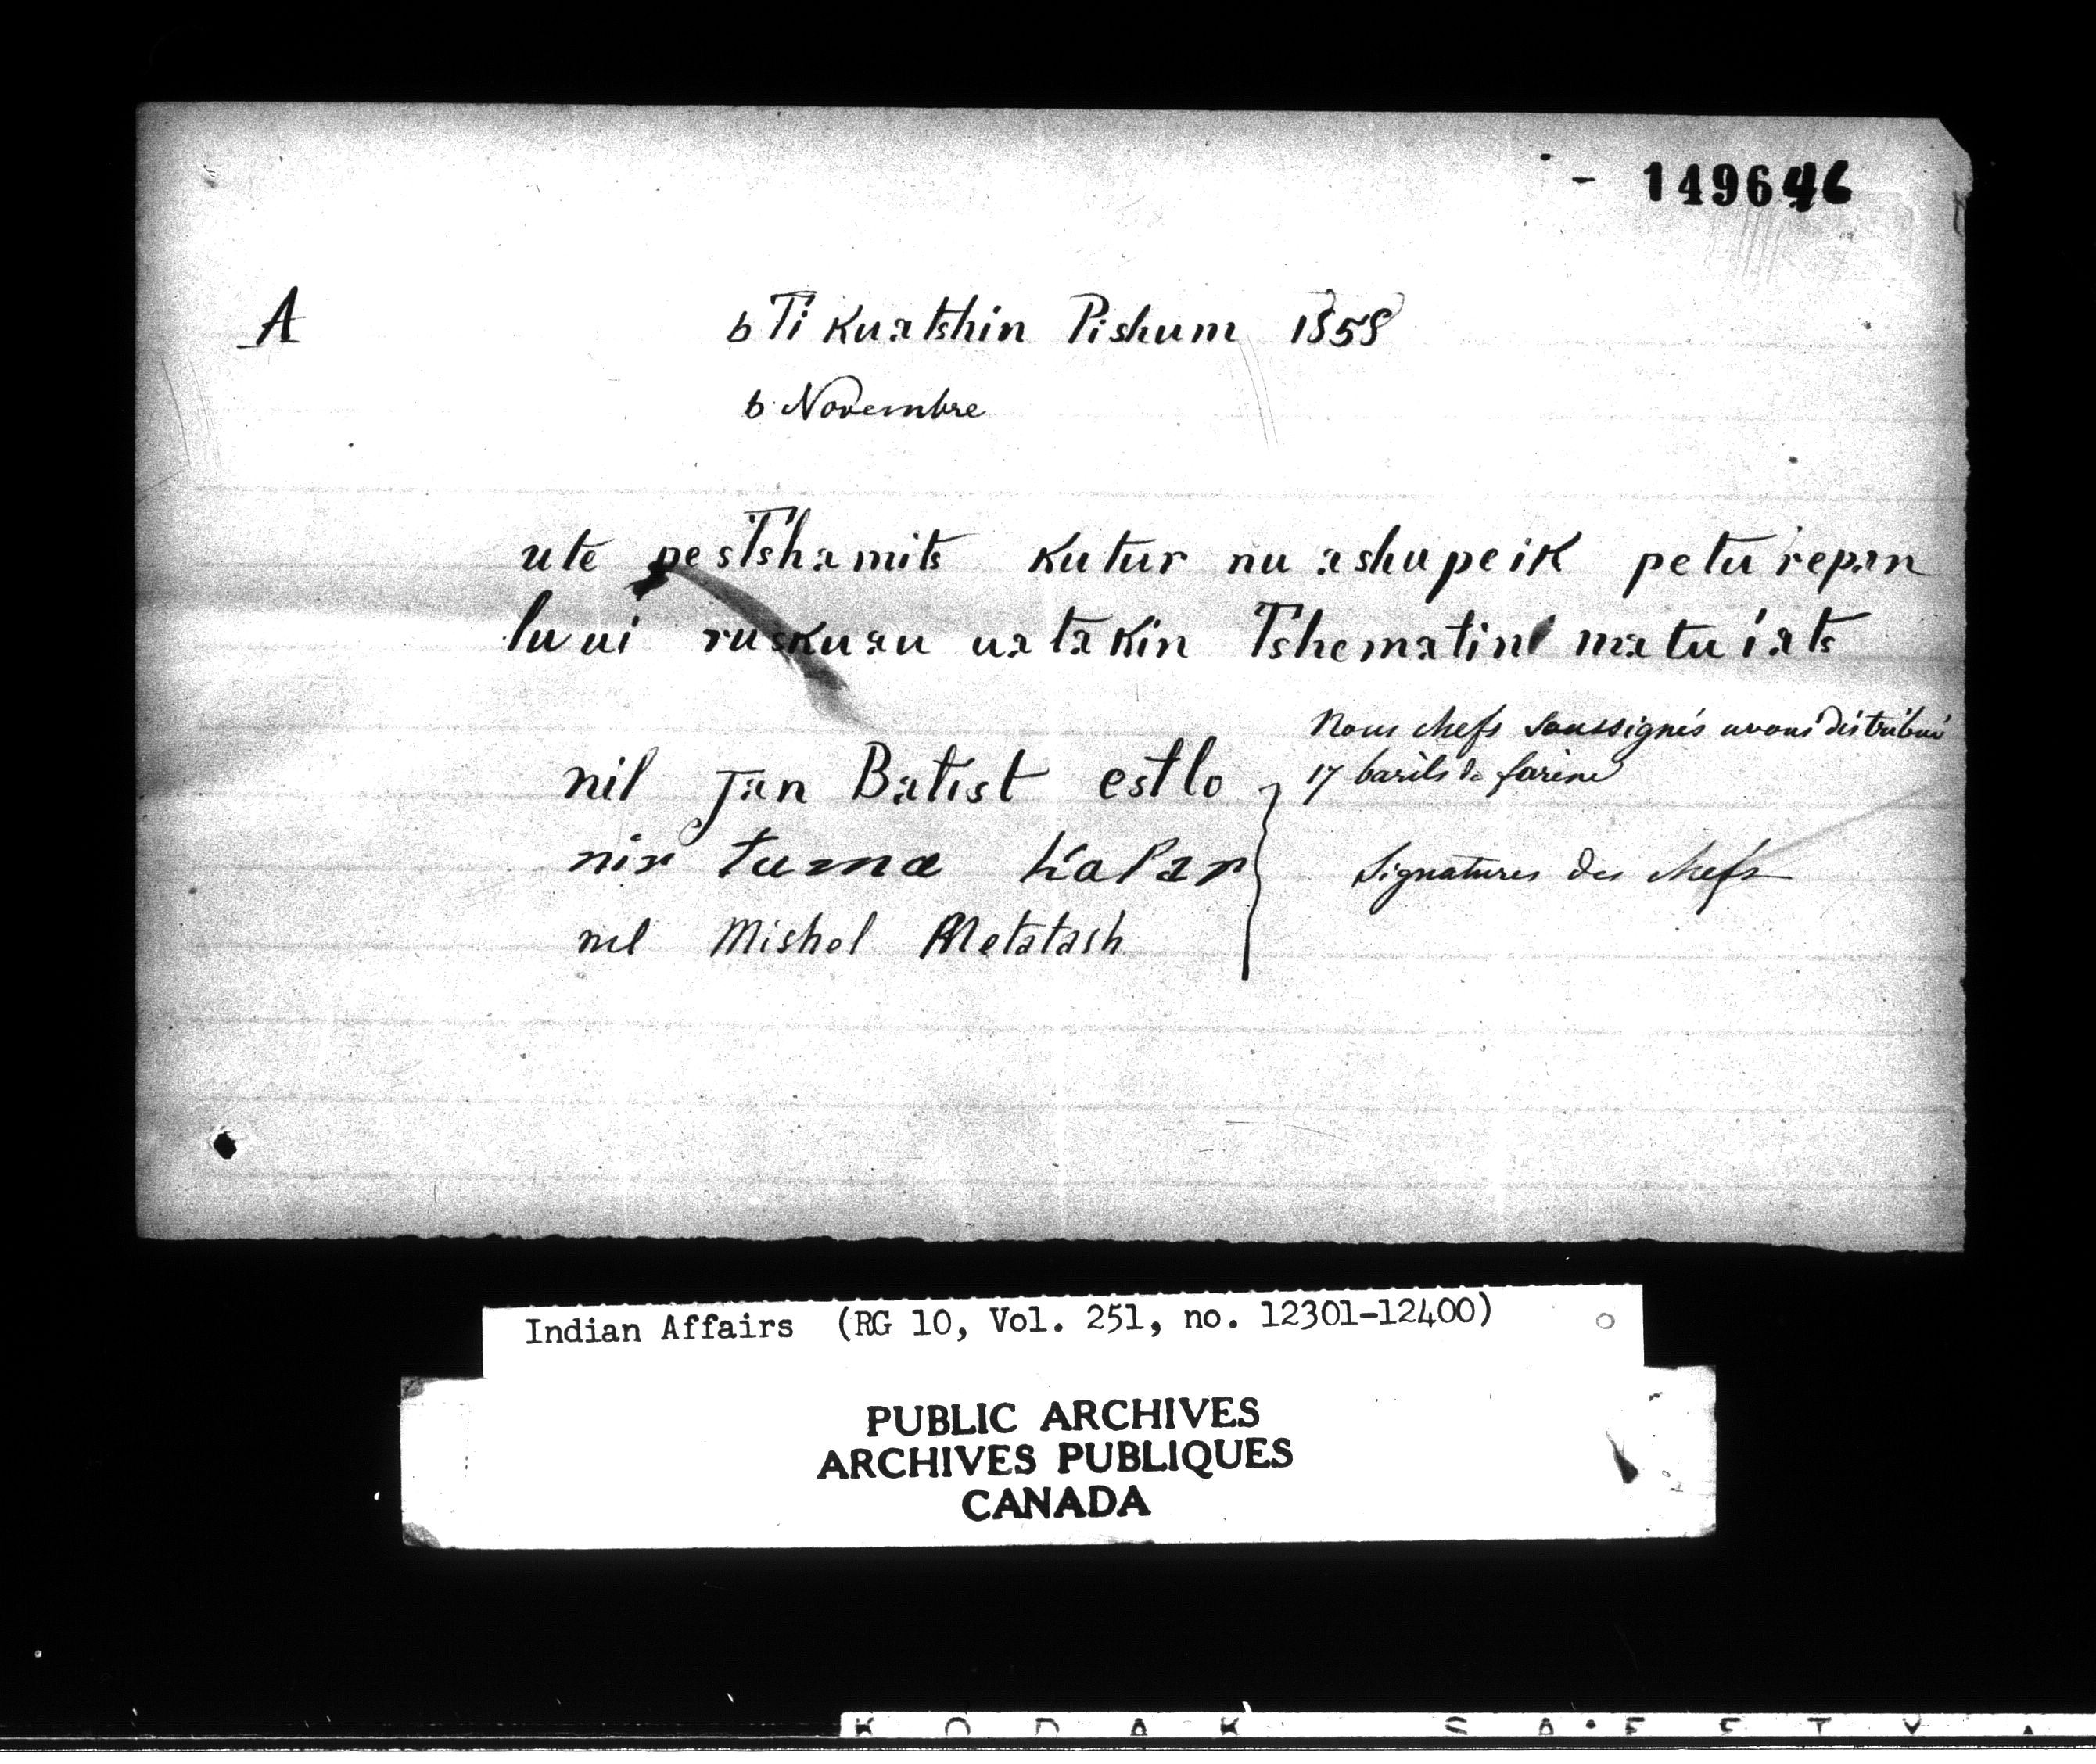 - 149646
A
6 Tikuatshin Pishum 1858
6 Novembre
ute pestshamits kutur nuashupeik peturepan
luui ruskuau uatakin Tshematinl matuiats
Nous chefs soussignés avons distribué
17 barils de farine
nil Jan Batist estlo
nir tuma kapar
nil Mishel Metatash
Signatures des chefs
Indian Affairs (RG 10, Vol. 251, no. 12301-12400)
PUBLIC ARCHIVES
ARCHIVES PUBLIQUES
CANADA
KODAK SAFETY